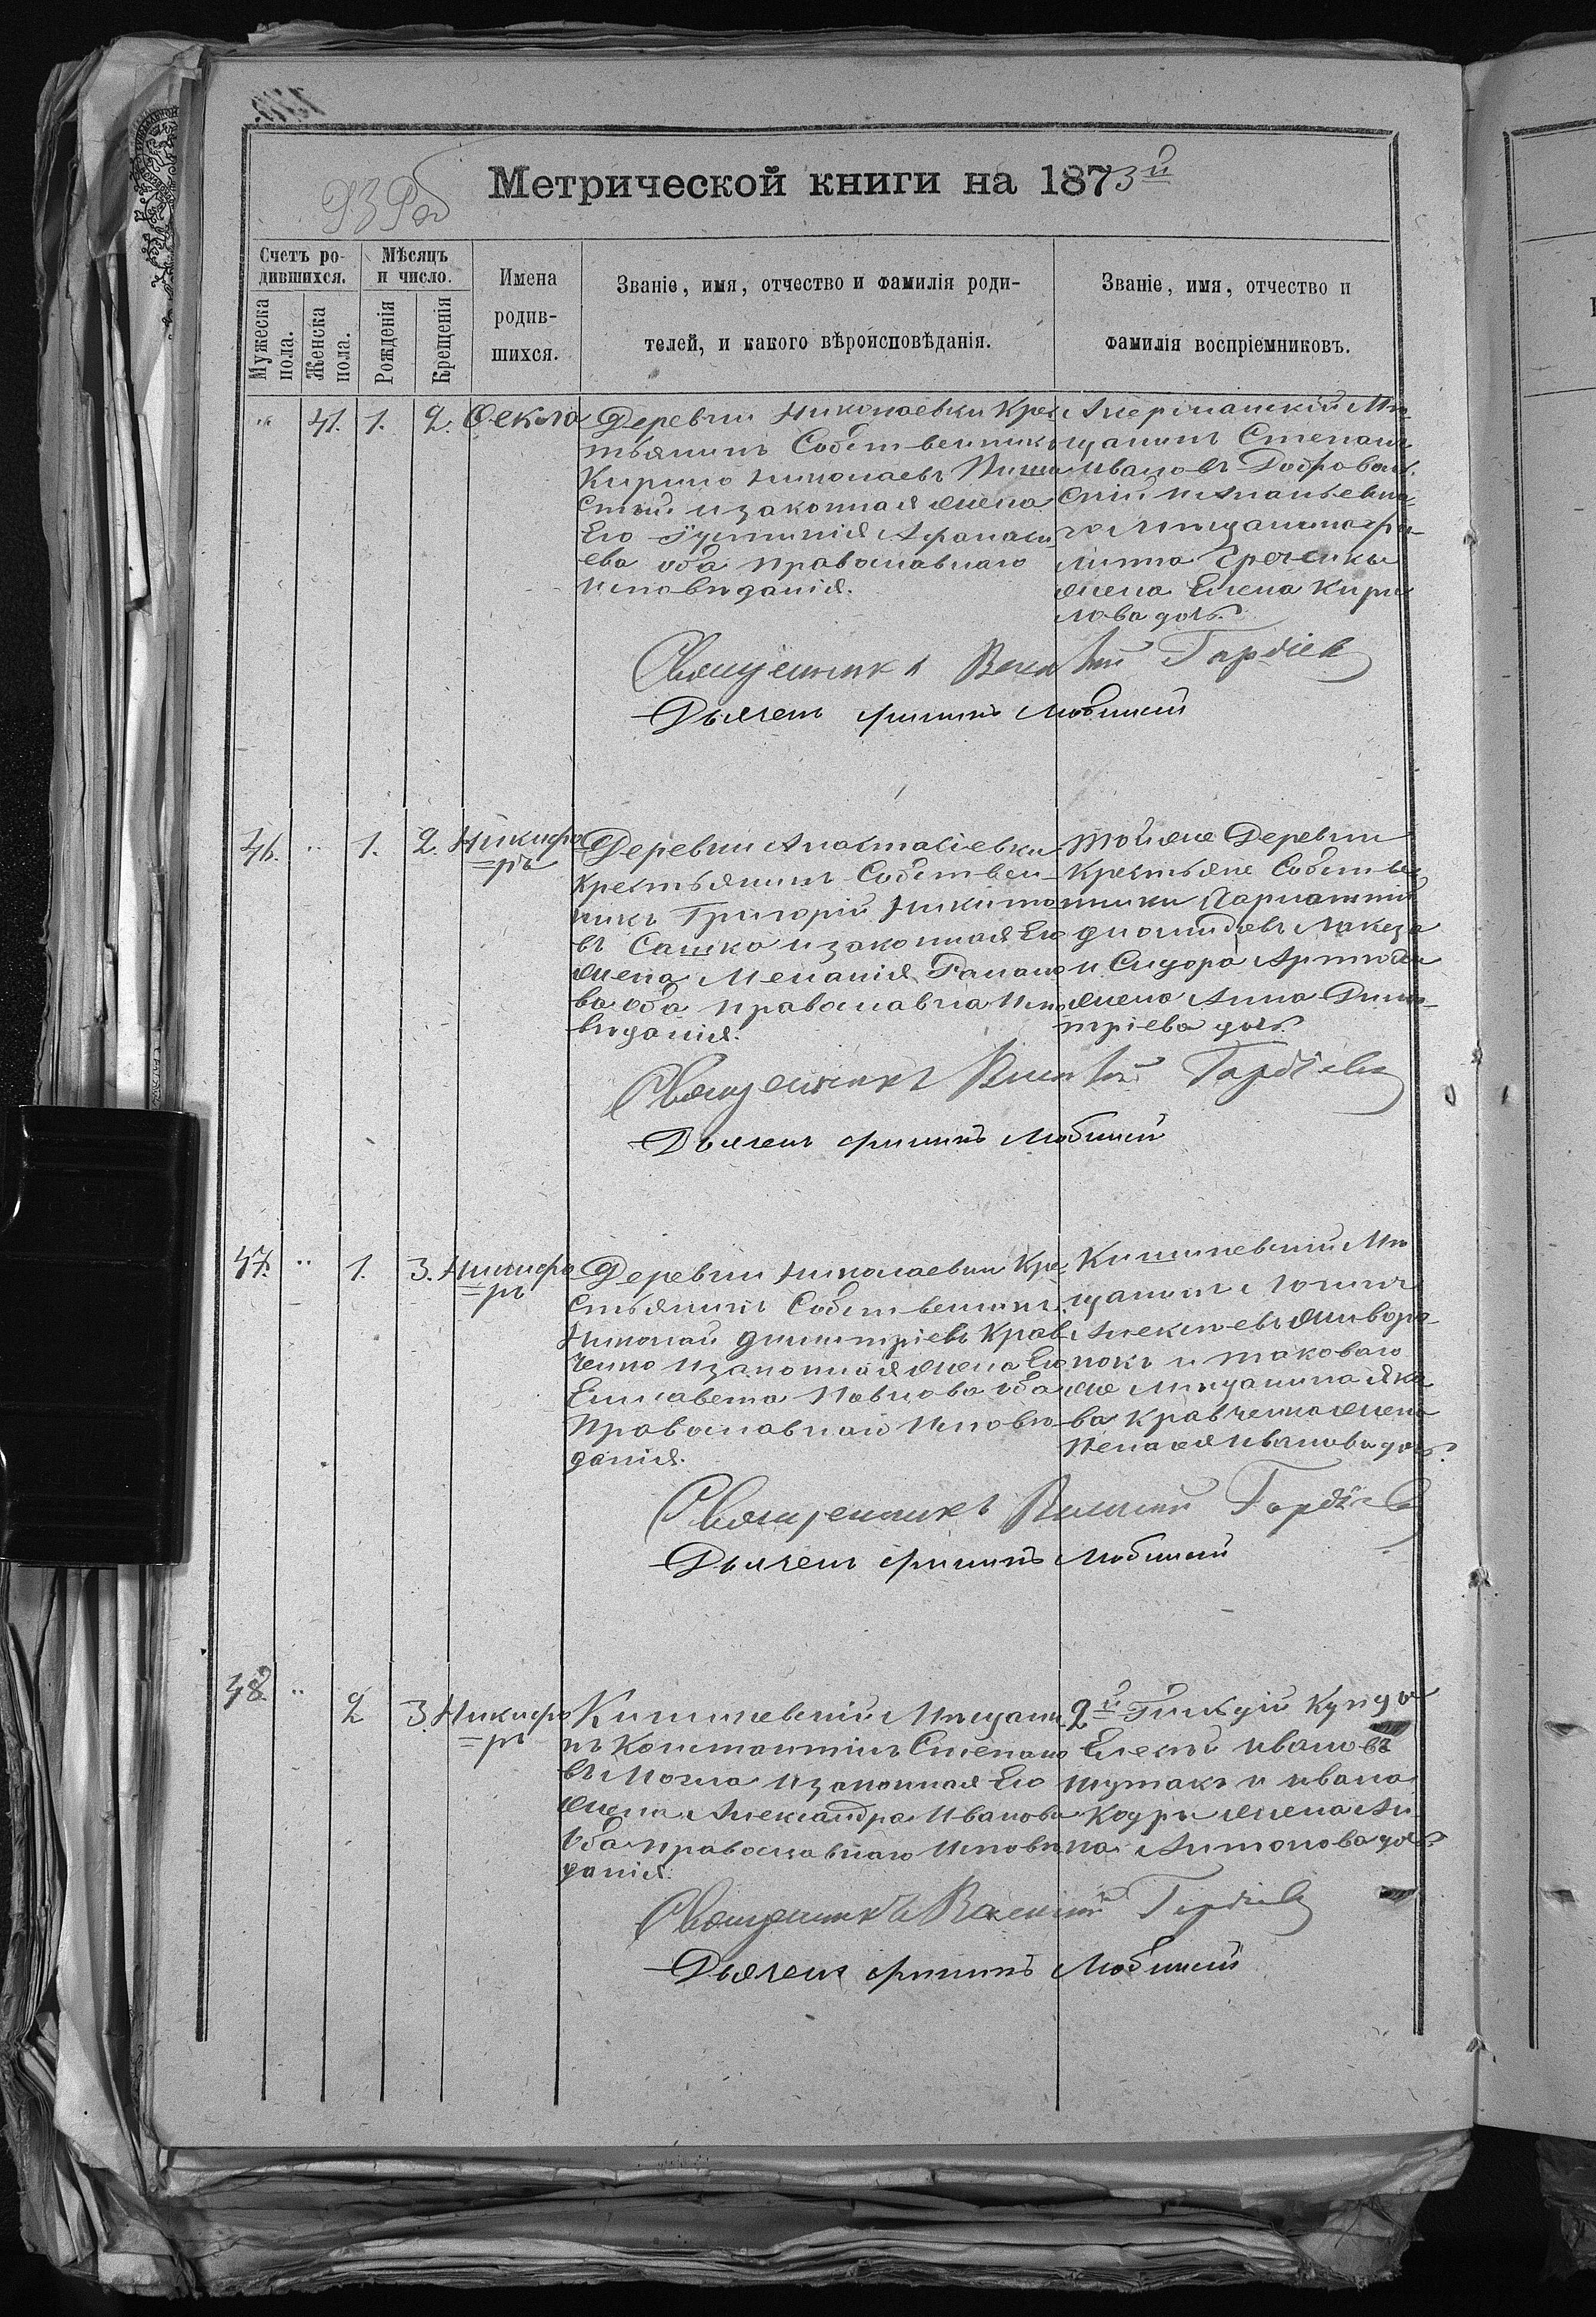 Метрической книги на 1873й
Счетъ ро-
дившихся.
Мужеска
пола.
Женска
пола.
Мѣсяцъ
и число.
Рожденія
Крещенія
Имена
родив-
шихся.
Званіе, имя, отчество и фамилія роди-
телей, и какого вѣроисповѣданія.
Званіе, имя, отчество и
фамилія воспріемниковъ.
" 41. 1. 2. Ѳекла
Деревни Николаевки Крес
тьянинъ Собственникъ
Кирило Николаевъ
и законная жена
Его Іустинія Афанась
ева оба православнаго
Исповѣданія.
Акерманскій Мѣ
щанинъ Степанъ
Ивановъ Доброволь
скій и Ананьевска
го Мѣщанина Фи
липпа Гречки
жена Елена Кири
лова дочь.
Священникъ Василій Гордіевъ
Дьячекъ Филипъ Любицкій
46. " 1. 2. Никифо
=ръ
Деревни Анастасіевки
крестьянинъ Собствен
никъ Григорій Никито
въ Сашко и законная Его
жена Меланія Романо
ва оба православна Испо
вѣданія.
той же Деревни
Крестьяне Собствен
ники Харлампій
Діомидовъ Макеза
и Сидора
жена Анна Дими
тріева дочь.
Священникъ Василій Гордіевъ
Дьячекъ Филипъ Любицкій
47. " 1. 3. Никифо
=ръ
Деревни Николаевки Кре
стьянинъ Собственникъ
Николай Димитріевъ Крав
ченко и законная жена Его
Елисавета Павлова оба
Православнаго Исповѣ
данія.
Кишиневскій Мѣ
щанинъ
Алексѣевъ
и таковаго
же Мѣщанина Яко
ва Кравченка жена
Пелагея Иванова дочь.
Священникъ Василій Гордіевъ
Дьячекъ Филипъ Любицкій
48. " 2 3. Никифо
=ръ
Кишиневскій Мѣщани
нъ Константинъ Степано
въ и законная Его
жена Александра Иванова
Оба православнаго Исповѣ
данія.
2й Гильдій Купецъ
Елесѣй Ивановъ
и Ивана
Кодры жена Ан
на Антонова дочь.
Священникъ Василій Гордіевъ
Дьячекъ Филипъ Любицкій